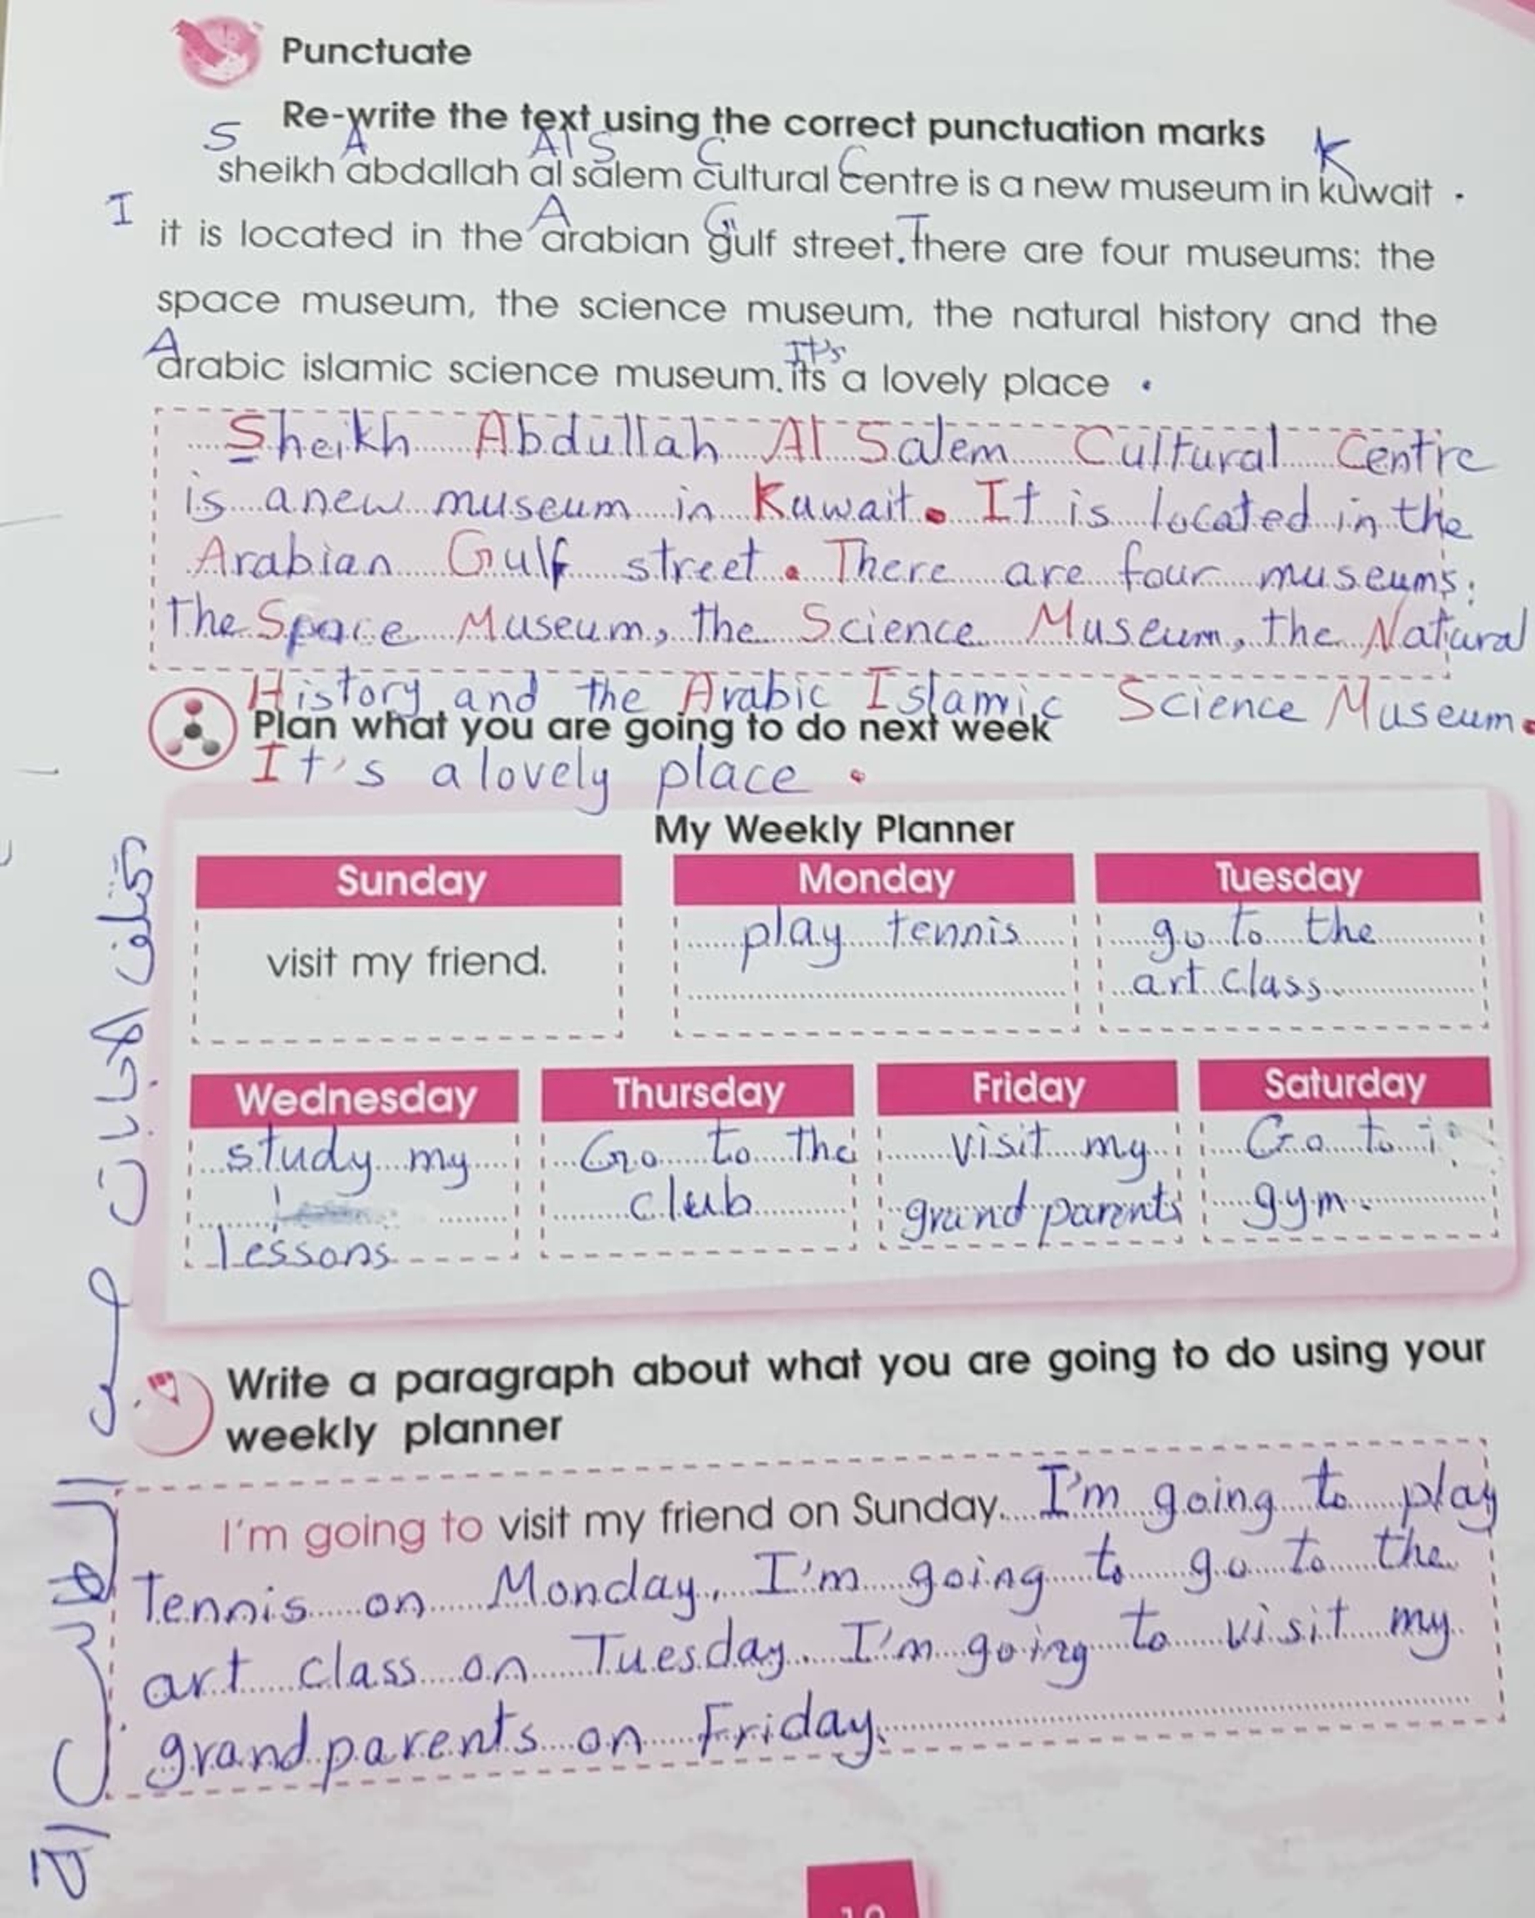 Punctuate
Re-write the text using the correct punctuation marks
S A Al S C C K
sheikh abdallah al salem cultural centre is a new museum in kuwait .
I A G T
it is located in the arabian gulf street. there are four museums: the
space museum, the science museum, the natural history and the
A It's
arabic islamic science museum. its a lovely place .
Sheikh Abdullah Al Salem Cultural Centre
is a new museum in Kuwait. It is located in the
Arabian Gulf street. There are four museums:
the Space Museum, the Science Museum, the Natural
History and the Arabic Islamic Science Museum.
Plan what you are going to do next week
It's a lovely place.
My Weekly Planner
Sunday Monday Tuesday
visit my friend. play tennis go to the
art class
Wednesday Thursday Friday Saturday
study my Go to the visit my Go to
lessons club grand parents gym.
Write a paragraph about what you are going to do using your
weekly planner
I'm going to visit my friend on Sunday. I'm going to play
Tennis on Monday, I'm going to go to the
art class on Tuesday. I'm going to visit my
grand parents on Friday.